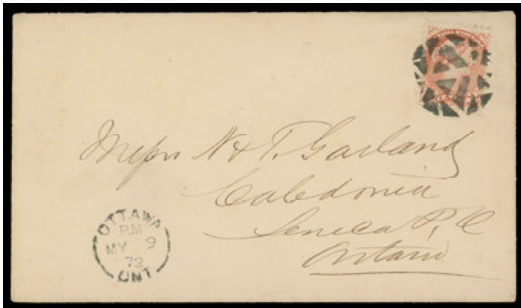 Messrs N & T. Garland
Caledonia
Seneca P, O
Ontario
OTTAWA
P.M
MY 9
72
ONT